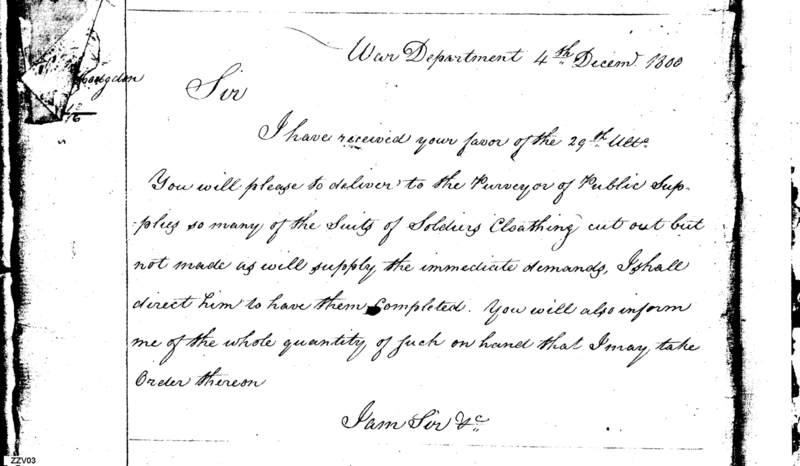 War Department 4th Decemr 1800
Hodgdon
Sir
I have received your favor of the 29th Ulto
You will please to deliver to the Purveyor of Public Sup-
-plies so many of the Suits of Soldiers Cloathing cut out but
not made as will supply the immediate demands, I shall
direct him to have them Completed. You will also inform
me of the whole quantity of such on hand that I may take
Order thereon
I am Sir &c
ZZV03